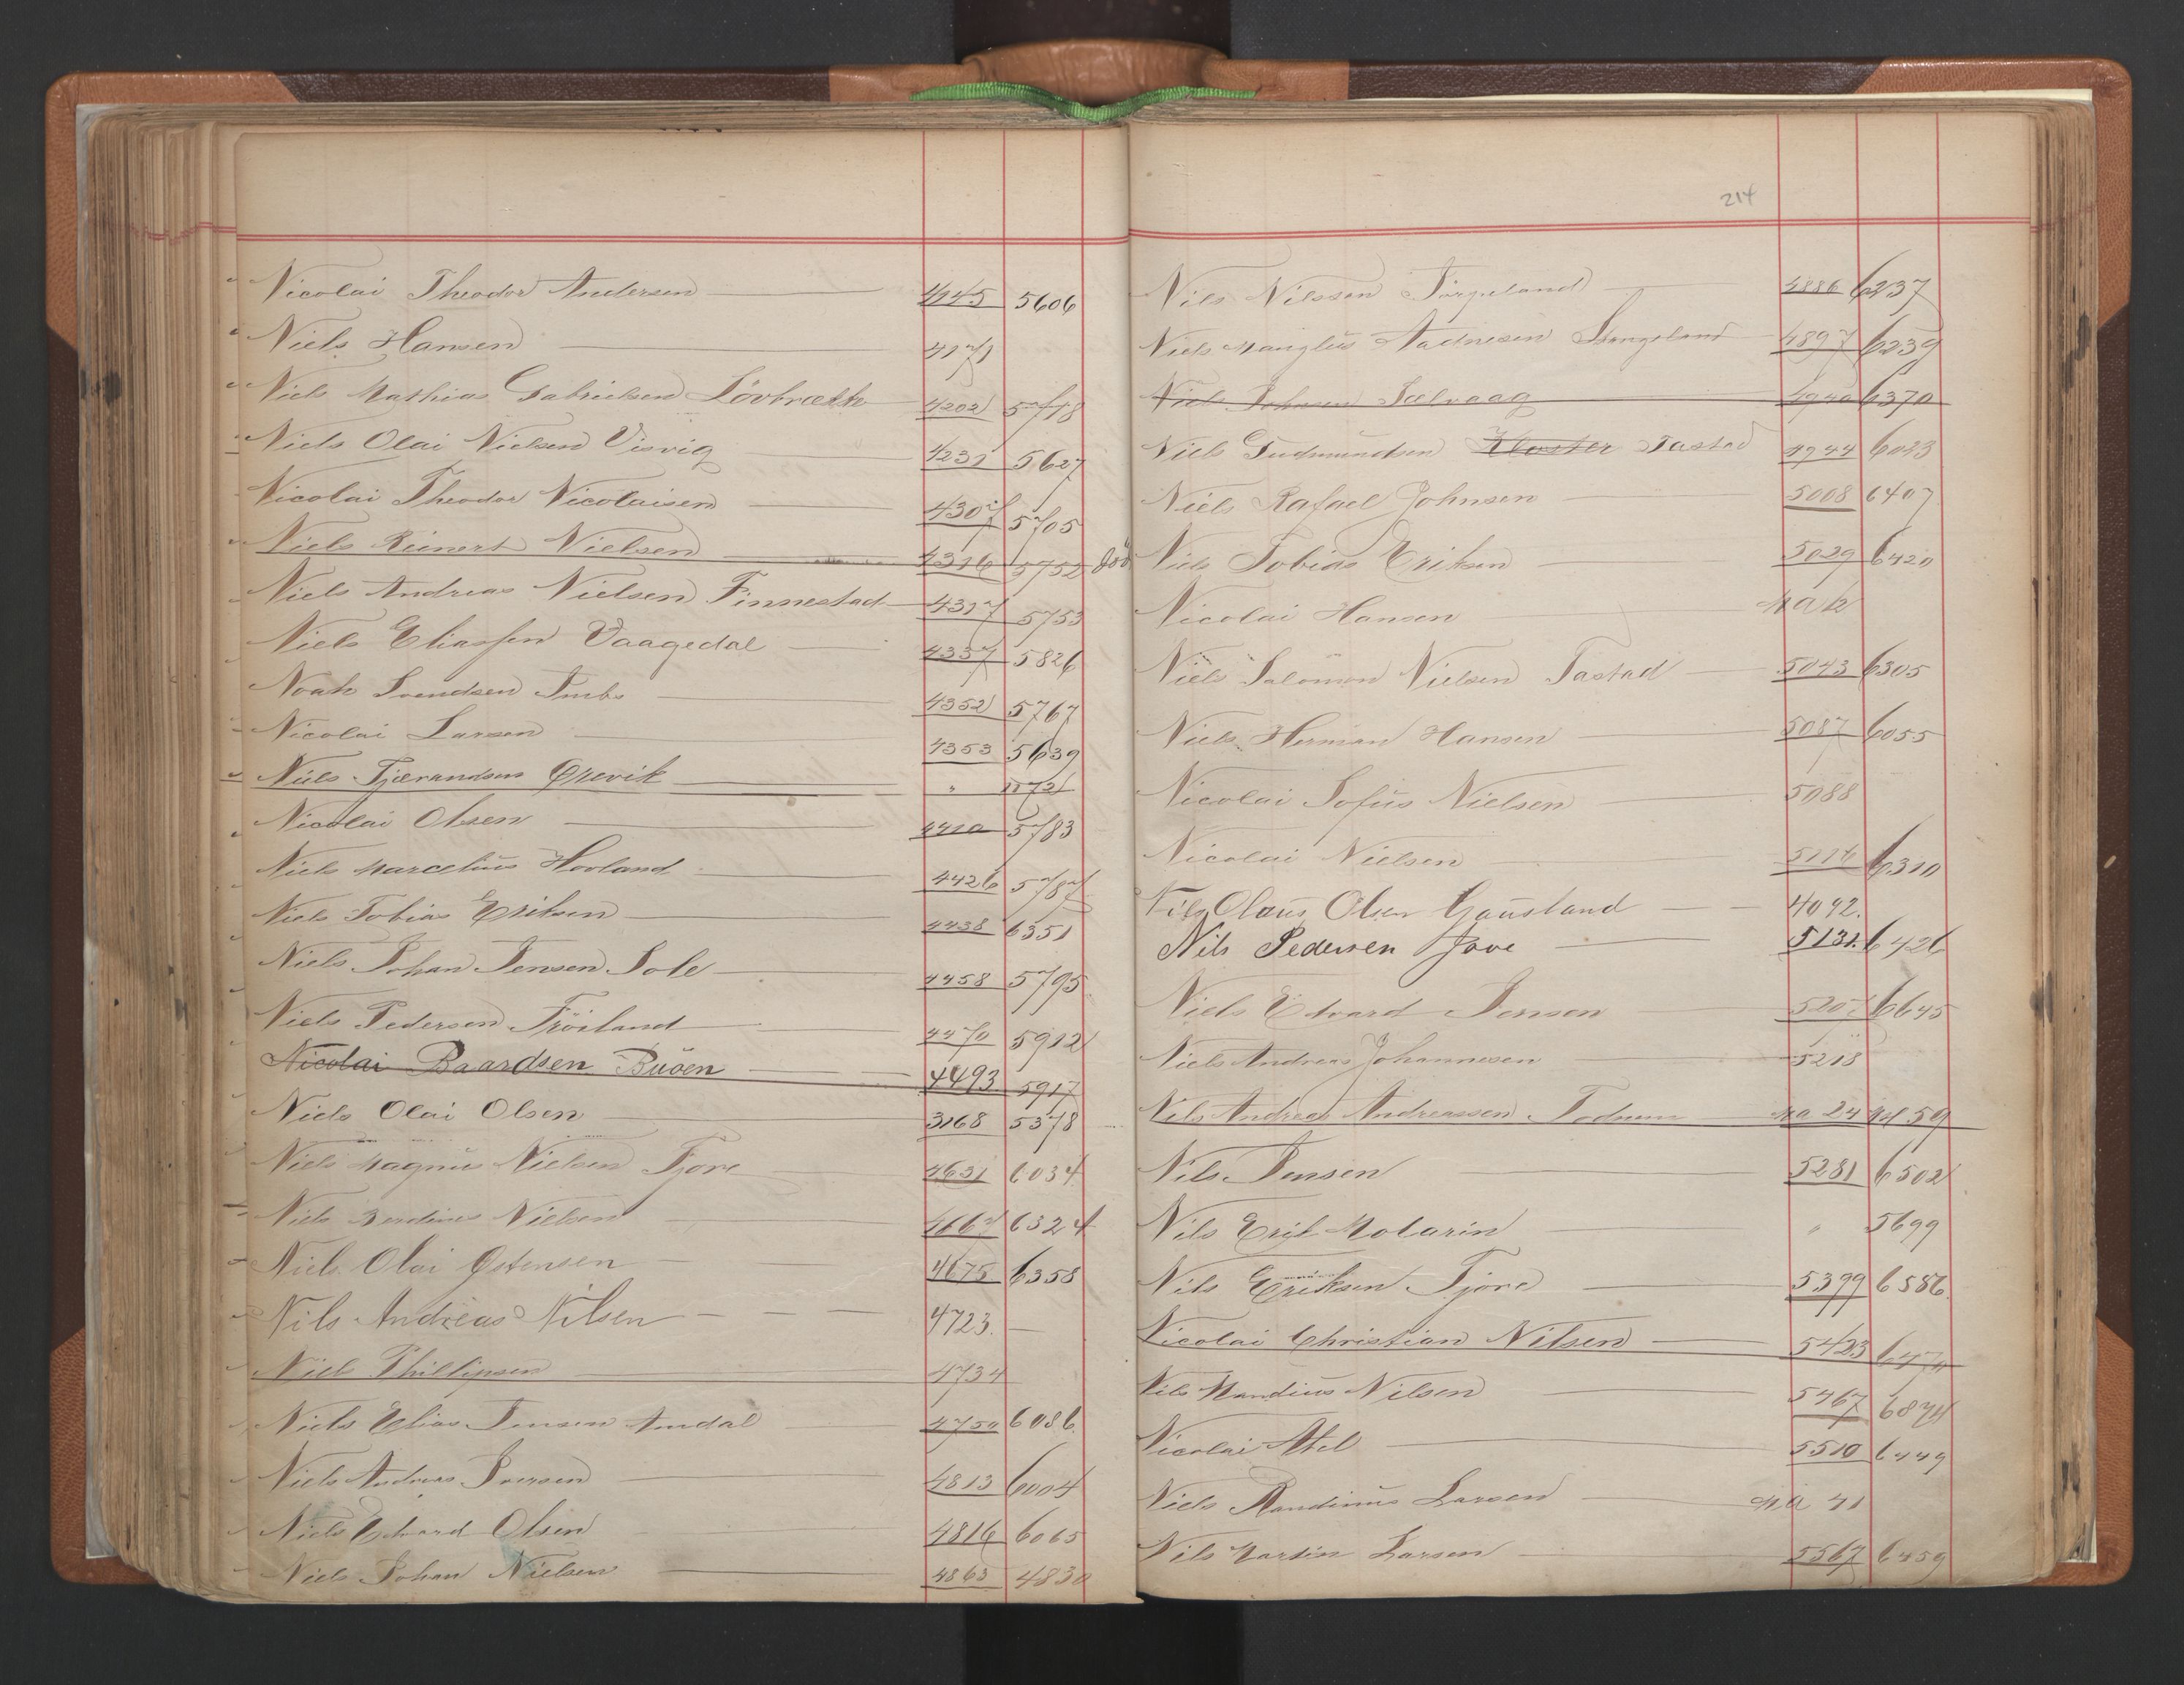 Nicolai Theodor Andersen 4145 5606
Niels Hansen 4171
Niels Mathias Gabrielsen Lövbrækk 4202 5718
Niels Olai Nielsen Visvig 4231 5627
Nicolai Theodor Nicolaisen 4307 5705
Niels Reinert Nielsen 4316 5752 död
Niels Andreas Nielsen Finnestad 4317 5753
Niels Eliassen Vaagedal 4337 5826
Noah Svendsen 4352 5767
Nicolai Larsen 4353 5639
Niels Tjærandsen Grevik " 1572
Nicolai Olsen 4410 5783
Niels Marcelius Hovland 4426 5787
Niels Tobias Eriksen 4438 6351
Niels Johan Jensen Sole 4458 5795
Niels Pedersen Fröiland 4470 5912
Nicolai Baardsen Buöen 4493 5917
Niels Olai Olsen 3168 5378
Niels Magnus Nielsen Fjore 4631 6034
Niels Berdines Nielsen 4667 6324
Niels Olai Ostensen 4675 6358
Nils Andreas Nilsen 4723.
Niels Phillipsen 4734
Niels Elias Jensen Amdal 4750 6086
Niels Andreas Iversen 4813 6004
Niels Edvard Olsen 4816 6065
Niels Johan Nielsen 4863 4830
214
Nils Nilssen Törgeland 4886 6237
Niels Mauglus Aadnesen Stangeland 4897 6239
Niels Johnsen Selvaag 4940 6370
Niels Gudmundsen Kloster Tastad 4944 6023
Niels Rafael Johnsen 5008 6407
Niels Tobias Eriksen 5029 6420
Nicolai Hansen
Niels Salomon Nielsen Tastad 5043 6305
Niels Herman Hansen 5087 6055
Nicolai Sofus Nielsen 5088
Nicolai Nielsen 5116 6310
Nils Olaus Olsen Gausland 4092.
Nils Pedersen Fjove 5131. 6426
Niels Edvard Jensen 5207 6645
Niels Andreas Johannesen 5218
Nils Andreas Andreassen Todnem na 24 1459
Nils Jensen 5281 6502
Nils Erik Molarin " 5699
Nils Eriksen Fjore 5399 6586
Nicolai Christian Nilsen 5423 6470
Nils Mandius Nilsen 5467 6874
Nicolai Abel 5510 6449
Niels Randinus Larsen na 41
Nils Martin Larsen 5567 6459